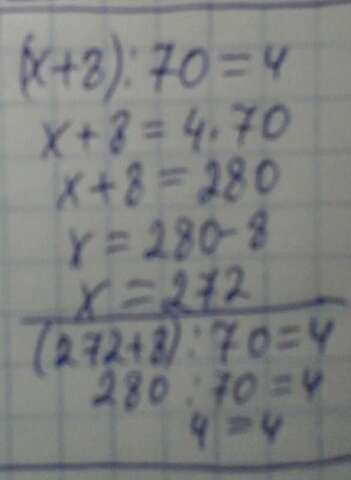 (x+8):70=4
x+8=4·70
x+8=280
x=280-8
x=272
(272+8):70=4
280:70=4
4=4